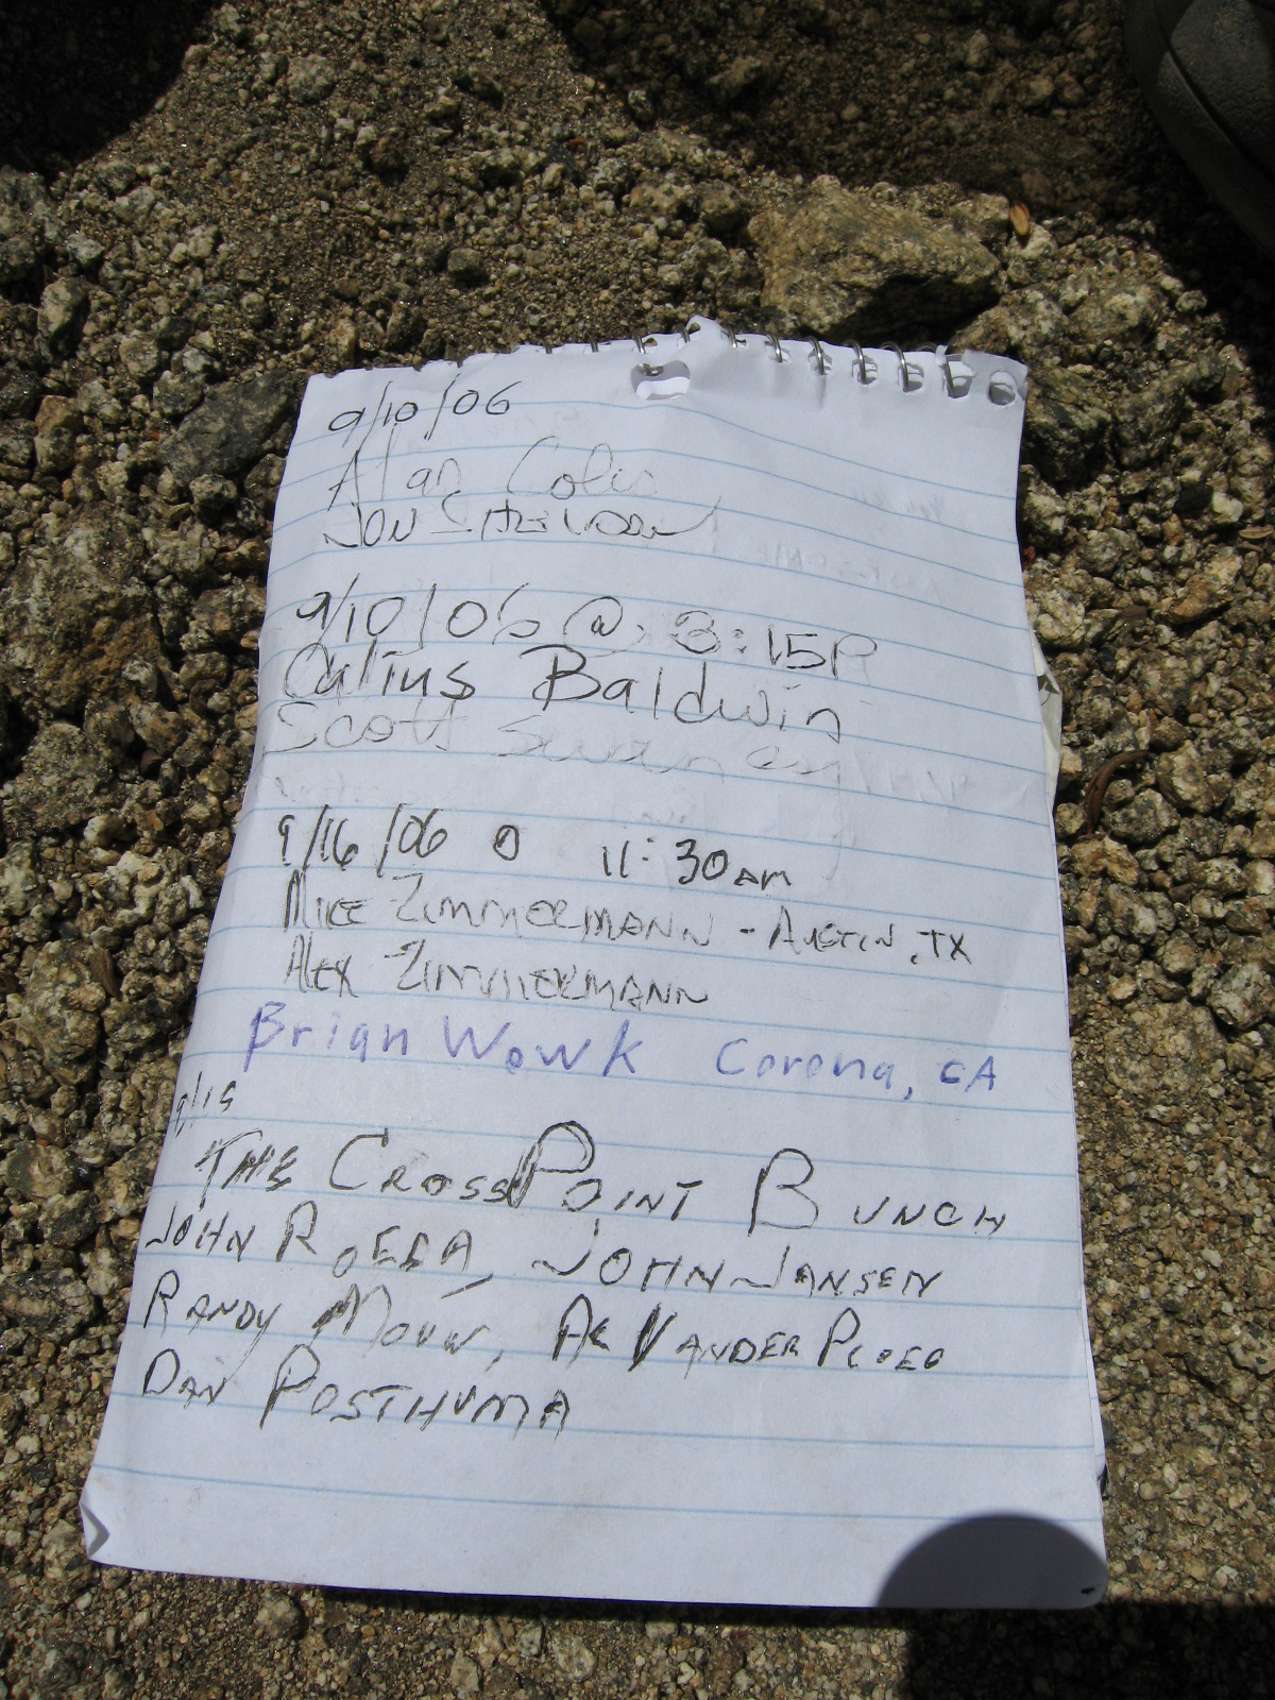 9/10/06
Alan
JON
9/10/06 @ 3:15P
Baldwin
Scott
9/16/06 @ 11:30AM
MIKE ZIMMERMANN - AUSTIN, TX
ALEX ZIMMERMANN
Brian Wowk Corona, CA
9/19
THE CROSSPOINT BUNCH
JOHN ROEDA, JOHN JANSEN
RANDY MOUW, AL VANDER PLOEG
DAN POSTHUMA